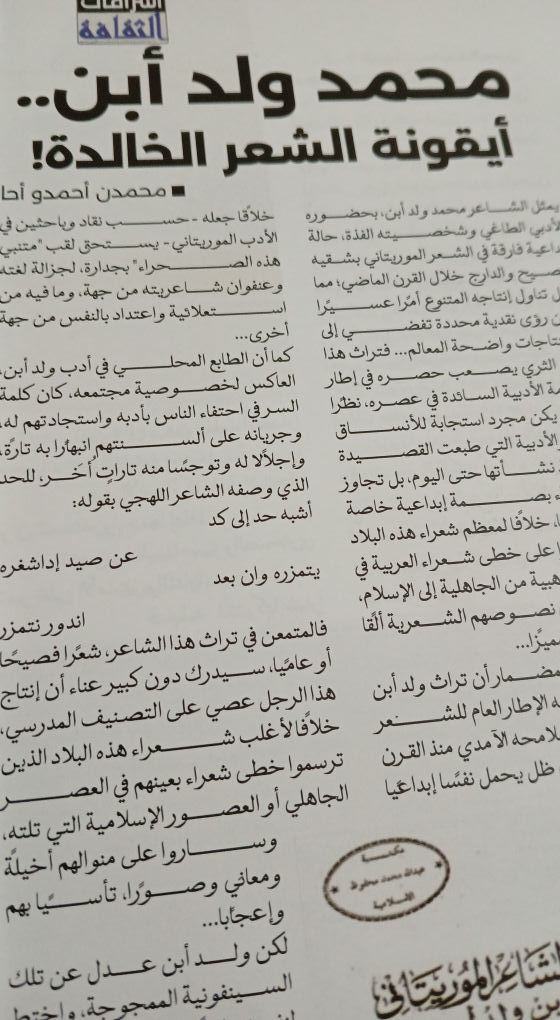 إشراقات
الثقافة
محمد ولد أبن..
أيقونة الشعر الخالدة!
■ محمدن أحمدو أحا
يمثل الشاعر محمد ولد أبن، بحضوره
الأدبي الطاغي وشخصيته الفذة، حالة
داعية فارقة في الشعر الموريتاني بشقيه
صيح والدارج خلال القرن الماضي؛ مما
ل تناول إنتاجه المتنوع أمرًا عسيرًا
ن رؤى نقدية محددة تفضي إلى
نتاجات واضحة المعالم... فتراث هذا
الثري يصعب حصره في إطار
ة الأدبية السائدة في عصره، نظرًا
يكن مجرد استجابة للأنساق
الأدبية التي طبعت القصيدة
نشأتها حتى اليوم، بل تجاوز
ء بصمة إبداعية خاصة
ا، خلافًا لمعظم شعراء هذه البلاد
ا على خطى شعراء العربية في
هبية من الجاهلية إلى الإسلام،
نصوصهم الشعرية ألقًا
ميزًا...
مضمار أن تراث ولد أبن
ه الإطار العام للشعر
لامحه الآمدي منذ القرن
ظل يحمل نفسًا إبداعيًا
مكتبة
عبدالله محمد محفوظ
الشاعر الموريتاني
خلاقًا جعله - حسب نقاد وباحثين في
الأدب الموريتاني - يستحق لقب "متنبي
هذه الصحراء" بجدارة، لجزالة لغته
وعنفوان شاعريته من جهة، وما فيه من
استعلائية واعتداد بالنفس من جهة
أخرى...
كما أن الطابع المحلي في أدب ولد أبن،
العاكس لخصوصية مجتمعه، كان كلمة
السر في احتفاء الناس بأدبه واستجادتهم له،
وجريانه على ألسنتهم انبهارًا به تارةً،
وإجلالا له وتوجسًا منه تاراتٍ أُخَر، للحد
الذي وصفه الشاعر اللهجي بقوله:
أشبه حد إلى كد
عن صيد إداشغره
يتمزره وان بعد
اندور نتمزر
فالمتمعن في تراث هذا الشاعر، شعرًا فصيحًا
أو عاميًا، سيدرك دون كبير عناء أن إنتاج
هذا الرجل عصي على التصنيف المدرسي،
خلافًا لأغلب شعراء هذه البلاد الذين
ترسموا خطى شعراء بعينهم في العصر
الجاهلي أو العصور الإسلامية التي تلته،
وساروا على منوالهم أخيلةً
ومعاني وصورًا، تأسيًا بهم
وإعجابا...
لكن ولد أبن عدل عن تلك
السينفونية الممجوجة، واختط